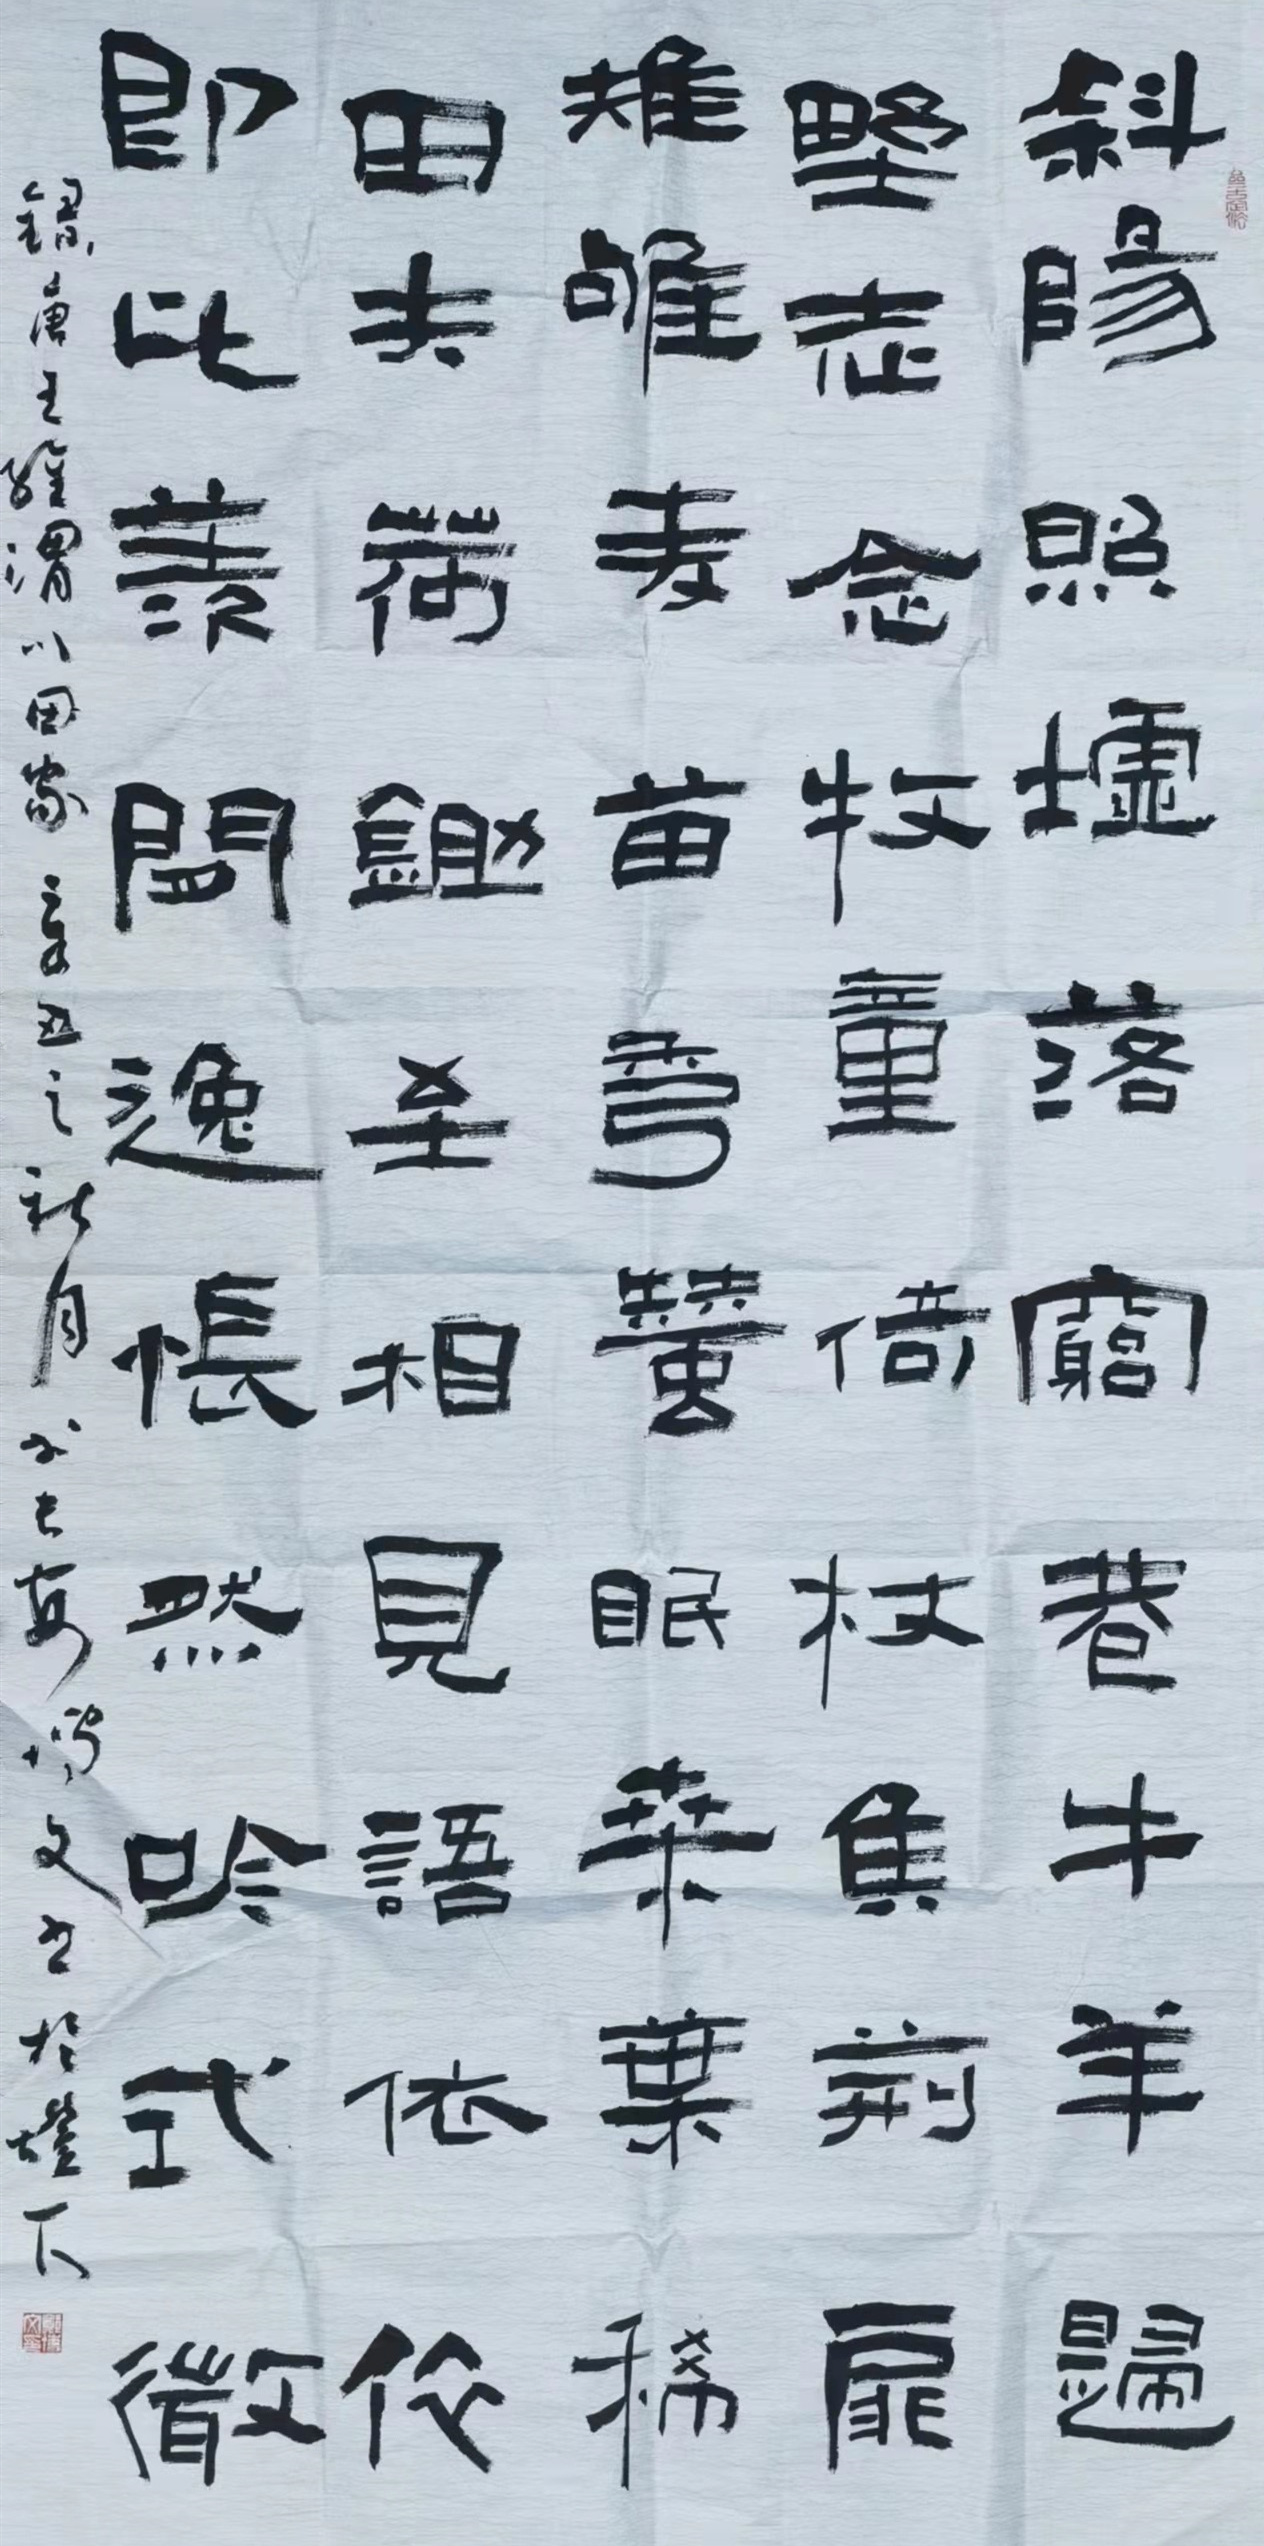 斜陽照墟落窮巷牛羊歸
野老念牧童倚杖候荊扉
雉雊麥苗秀蠶眠桑葉稀
田夫荷鋤至相見語依依
即此羨閒逸悵然吟式微
錄唐王維渭川田家辛丑之秋月博文書於燈下